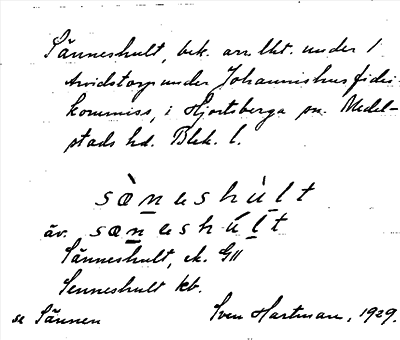 Sänneshult, bek. arr. lht. under 1
Arvidstorp under Johannishus fidei-
kommiss, i Hjortsberga sn. Medel-
stads hd. Blek. l.
sæ̀neshùlt
äv. sæneshúlt
Sänneshult, ek. GII
Senneshult kb.
se Sännen
Sven Hartman, 1929.